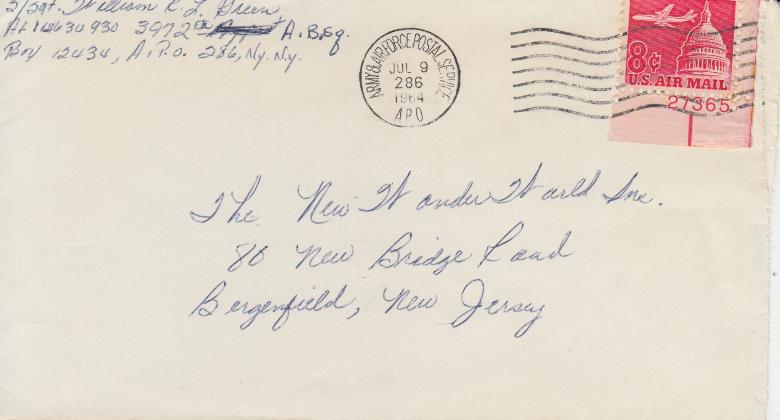 S/Sgt. William R. L. Green
AF14634930 3972nd A.B.Sq.
Box 12434, A.P.O. 286, Ny. Ny.
ARMY & AIR FORCE POSTAL SERVICE
JUL 9
286
1964
APO
8¢
U.S. AIR MAIL
27365
The New Wonder World Inc.
80 New Bridge Road
Bergenfield, New Jersey